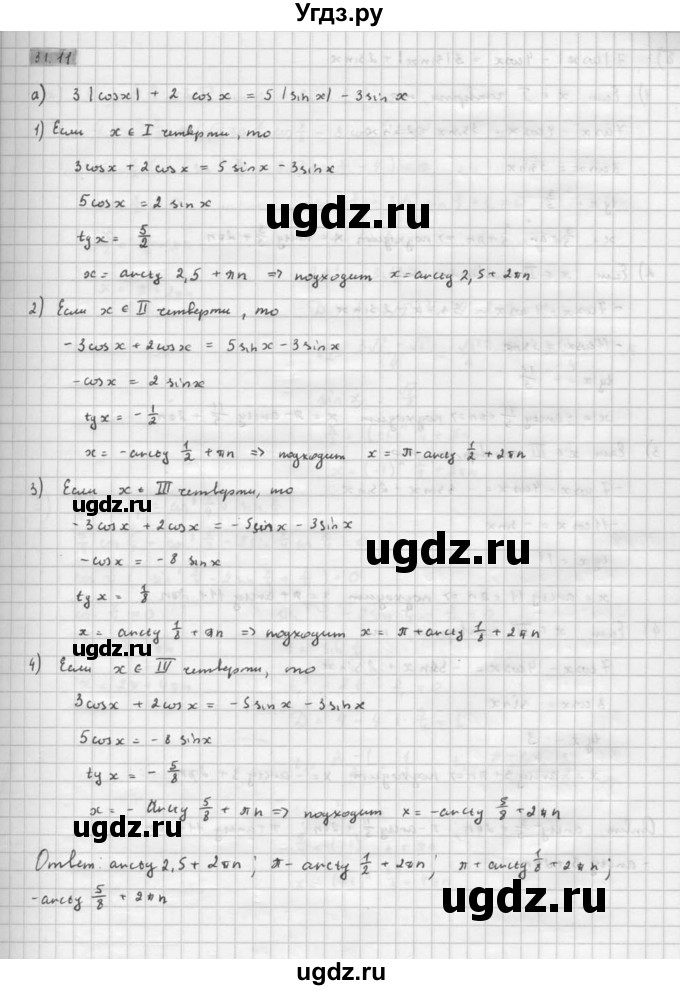 Угдз.ру
31.11
а) 3|cosx| + 2 cosx = 5|sinx| - 3sinx
1) Если x ∈ I четверти, то
3cosx + 2cosx = 5sinx - 3sinx
5cosx = 2 sinx
tgx = 5/2
x = arctg 2,5 + πn => подходит x = arctg 2,5 + 2πn
2) Если x ∈ II четверти, то
-3cosx + 2cosx = 5sinx - 3sinx
-cosx = 2 sinx
tgx = -1/2
x = -arctg 1/2 + πn => подходит x = π - arctg 1/2 + 2πn
3) Если x ∈ III четверти, то
-3cosx + 2cosx = -5sinx - 3sinx
-cosx = -8 sinx
tgx = 1/8
x = arctg 1/8 + πn => подходит x = π + arctg 1/8 + 2πn
4) Если x ∈ IV четверти, то
3cosx + 2cosx = -5sinx - 3sinx
5cosx = -8 sinx
tgx = -5/8
x = -arctg 5/8 + πn => подходит x = -arctg 5/8 + 2πn
Ответ: arctg 2,5 + 2πn; π - arctg 1/2 + 2πn; π + arctg 1/8 + 2πn;
-arctg 5/8 + 2πn
ugdz.ru
ugdz.ru
ugdz.ru
ugdz.ru
ugdz.ru
ugdz.ru
ugdz.ru
ugdz.ru
ugdz.ru